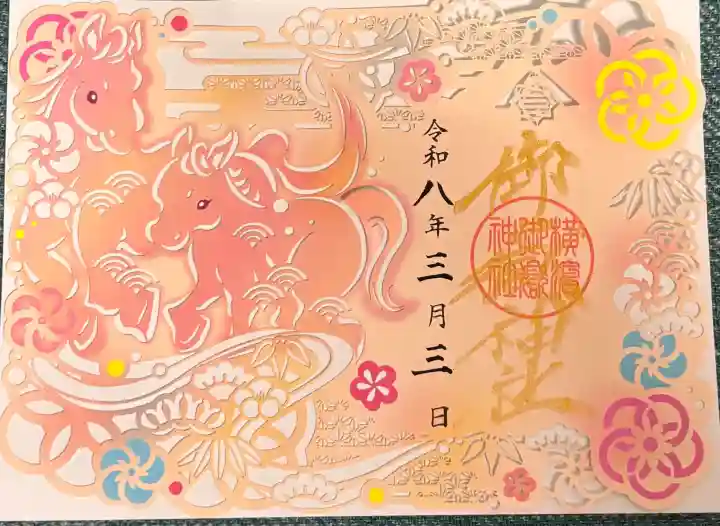 横濱
御嶽
神社
令和八年三月三日